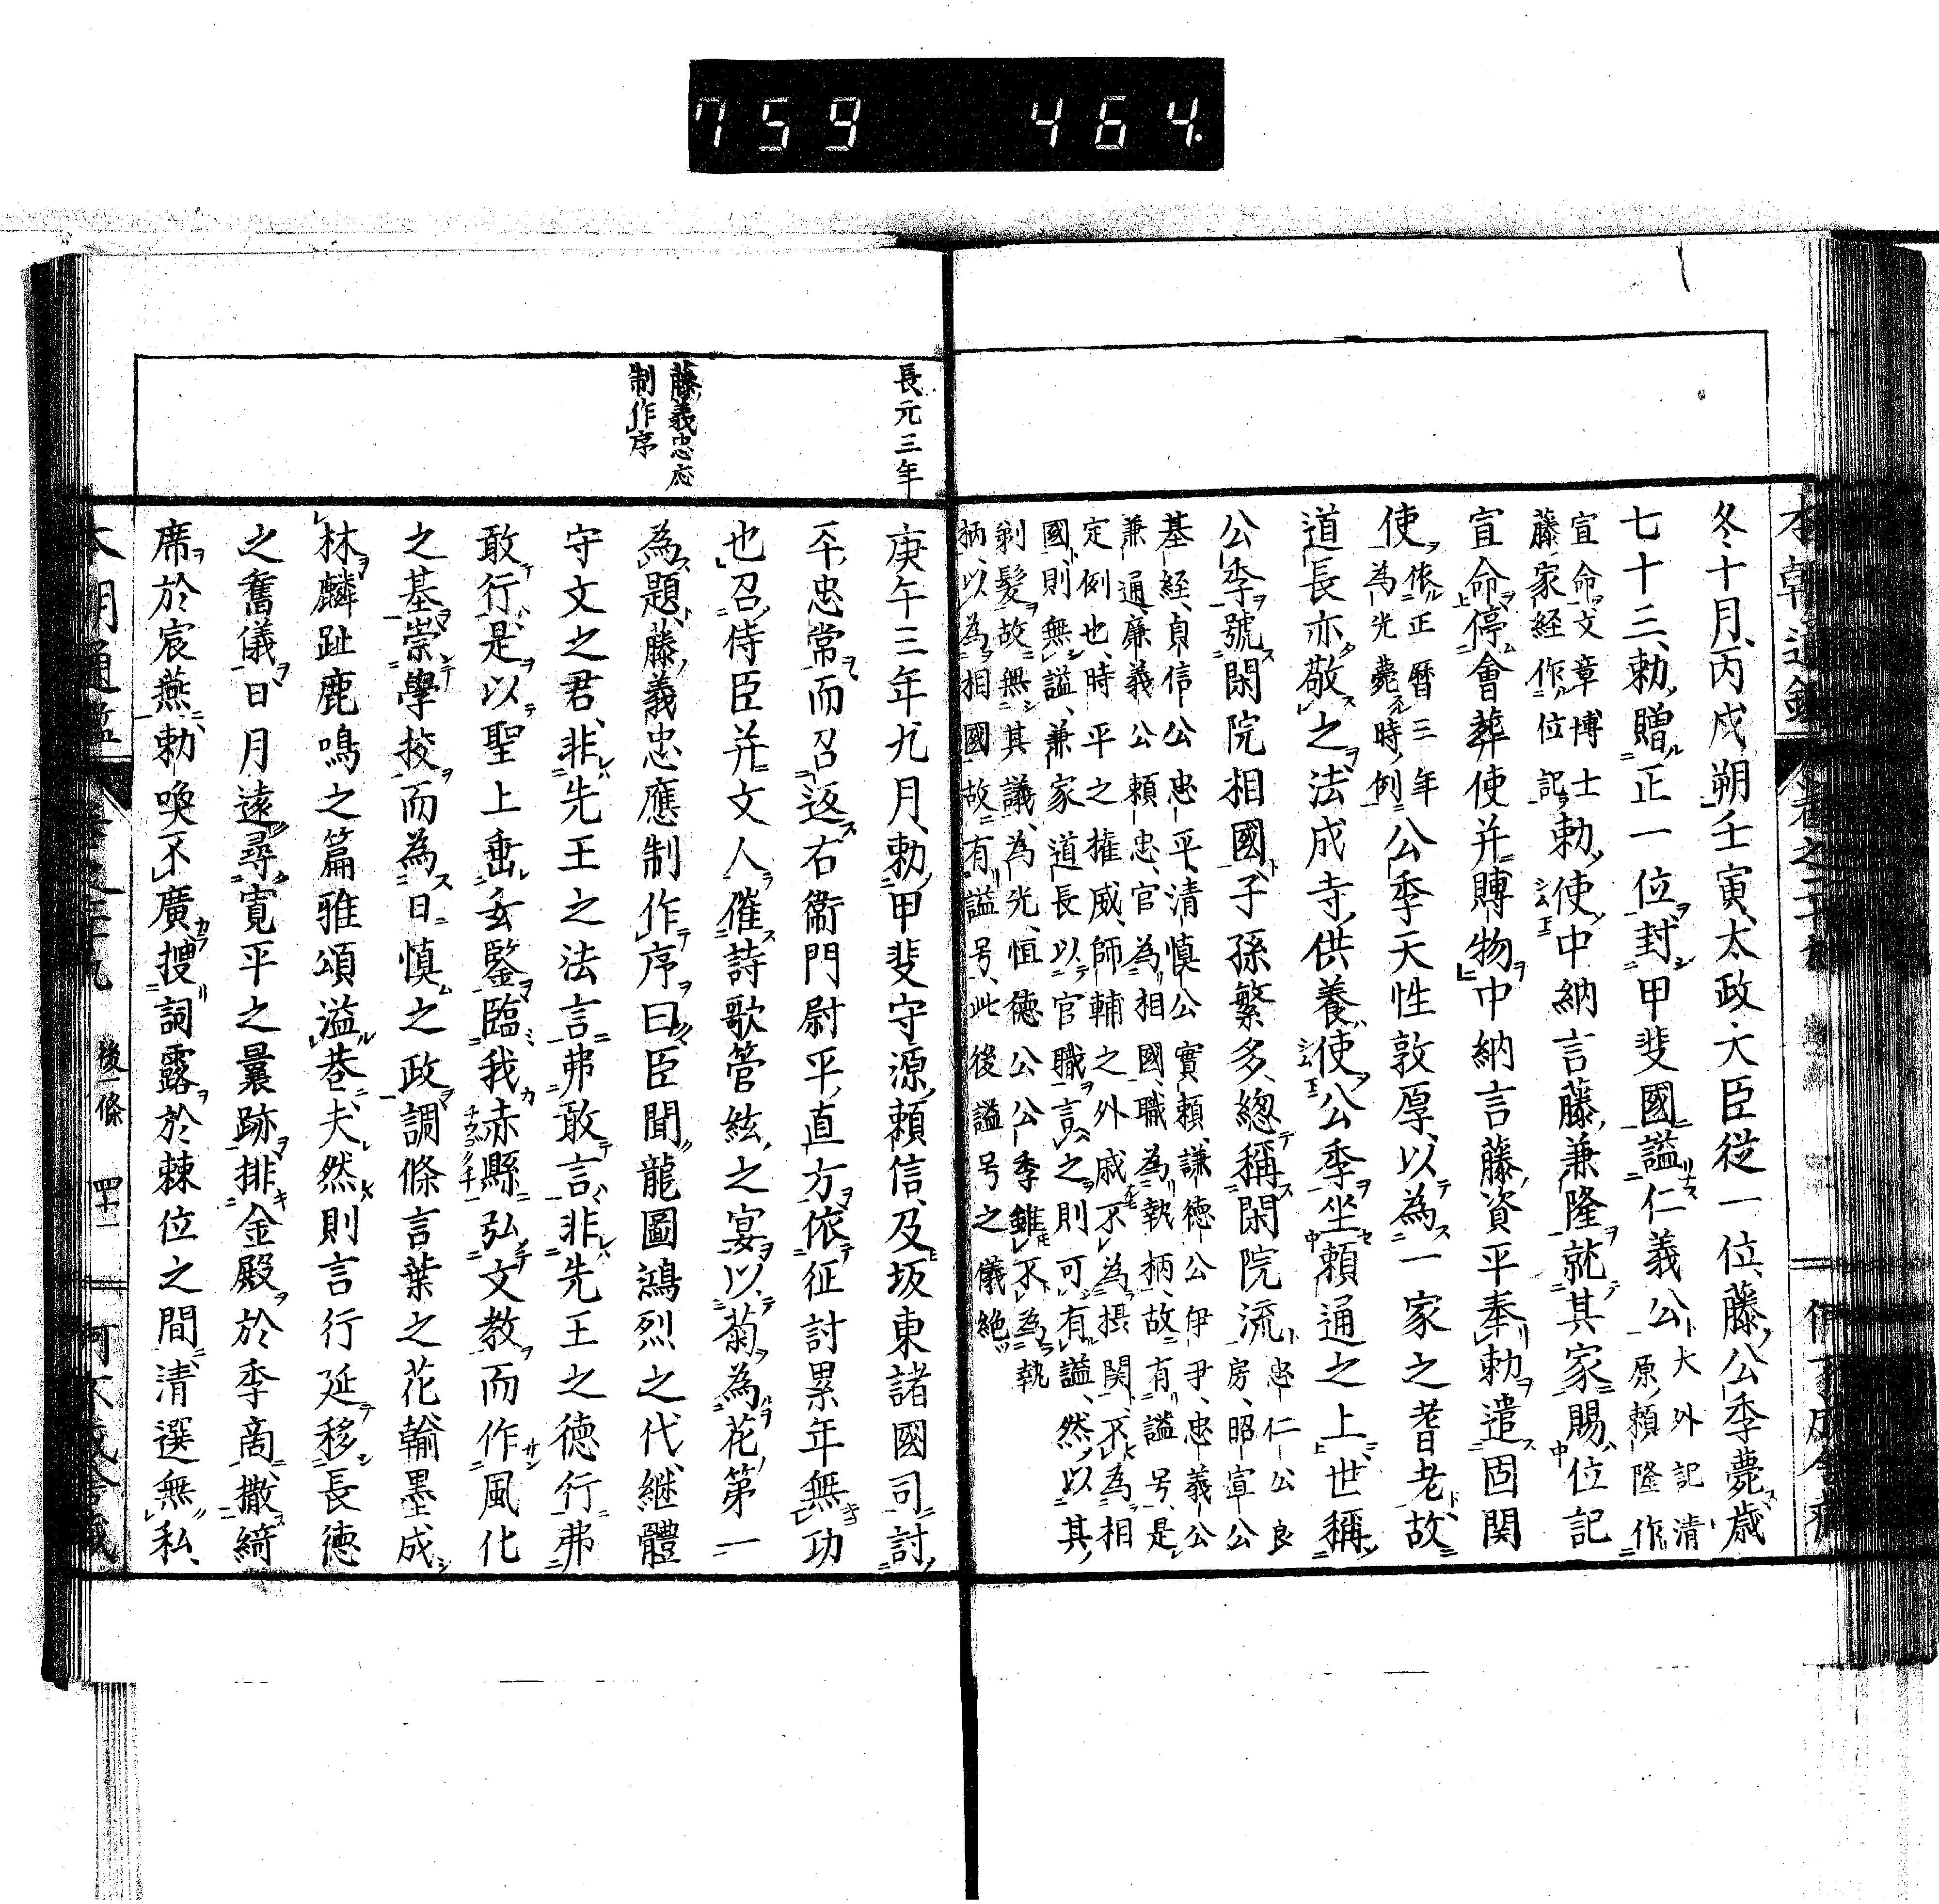 759 464.
冬十月丙戌朔壬寅太政大臣從一位藤公季薨歳
七十三勅贈正一位封甲斐國謚仁義公大外記清
原頼隆作
宣命文章博士
藤家経作位記勅使中納言藤兼隆就其家賜位記
宣命停會葬使并賻物中納言藤資平奉勅遣固関
使依正暦三年
為光薨時例公季天性敦厚以為一家之耆老故
道長亦敬之法成寺供養使公季坐頼通之上世稱
公季號閑院相國子孫繁多總稱閑院流忠仁公良
房昭宣公
基経貞信公忠平清慎公實頼謙徳公伊尹忠義公
兼通廉義公頼忠官為相國職為執柄故有謚号是
定例也時平之権威師輔之外戚不為摂関不為相
國則無謚兼家道長以官職言之則可有謚然以其
剃髪故無其議為光恒徳公公季雖不為執
柄以為相國故有謚号此後謚号之儀絶
長元三年
庚午三年九月勅甲斐守源頼信及坂東諸國司討
平忠常而召返右衞門尉平直方依征討累年無功
也召侍臣并文人催詩歌管絃之宴以菊為花第一
藤義忠應
制作序
為題藤義忠應制作序曰臣聞龍圖鴻烈之代継體
守文之君非先王之法言弗敢言非先王之德行弗
敢行是以聖上垂玄鑒臨我赤縣弘文教而作風化
之基崇學挍而為日慎之政調條言葉之花翰墨成
林麟趾鹿鳴之篇雅頌溢巷夫然則言行延移長徳
之舊儀日月遠尋寛平之曩跡排金殿於季商撒綺
席於宸燕勅喚不廣搜詞露於棘位之間清選無私
本朝通鑑
後一條 四十一